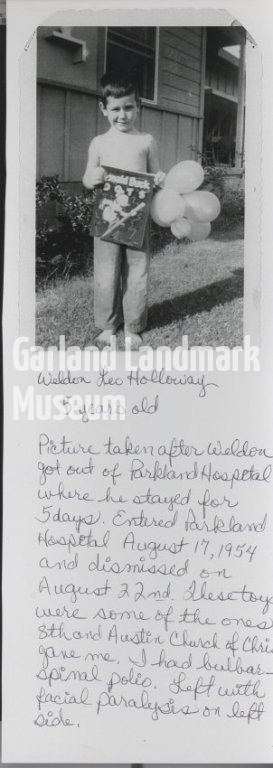 Garland Landmark
Museum
Weldon Leo Holloway
5 years old
Picture taken after Weldon
got out of Parkland Hospital
where he stayed for
5 days. Entered Parkland
Hospital August 17, 1954
and dismissed on
August 22nd. These toys
were some of the ones
8th and Austin Church of Chris
gave me. I had bulbar-
spinal polio. Left with
facial paralysis on left
side.